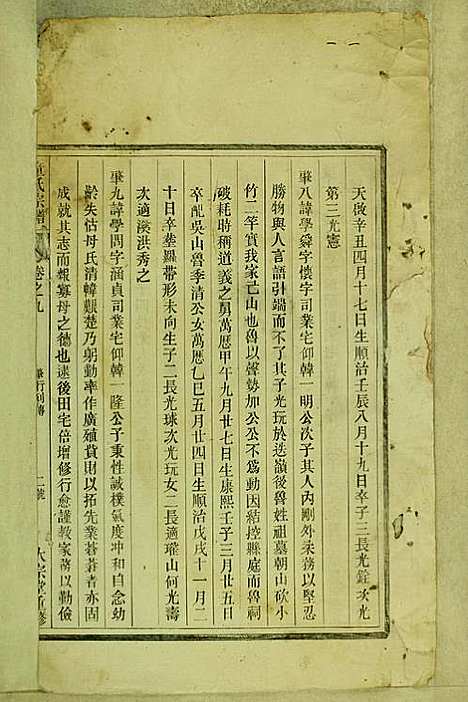 天啟辛丑四月十七日生順治壬辰八月十九日卒子三長光銓次光
第三光憲
肇八諱學舜字懷字司業宅仰韓一明公次子其人內剛外柔務以堅忍
勝物與人言語引端而不了其子光玩於迭嶺後魯姓祖墓朝山砍小
竹二年實我家己山也魯以聲勢加公公不為動因結控縣庭而魯祠
破耗時稱道義之勇萬曆甲午九月廿七日生康熙壬子三月廿五日
卒配吳山魯季清公女萬曆乙巳五月廿四日生順治戊戌十一月二
十日卒塟羅帶形未向生子二長光球次光玩女二長適㻶山何光濤
次適溪洪秀之
肇九諱學問字涵貞司業宅仰韓一隆公子秉性誠樸氣度冲和自念幼
齡失怙母氏清韓艱楚乃躬勤率作廣殖貲財以拓先業蒼蒼者亦固
成就其志而報寡母之德也遠後田宅倍增修行愈謹教家務以勤儉
氏宗譜
卷之九
肇行列傳
二號
大宗堂首修